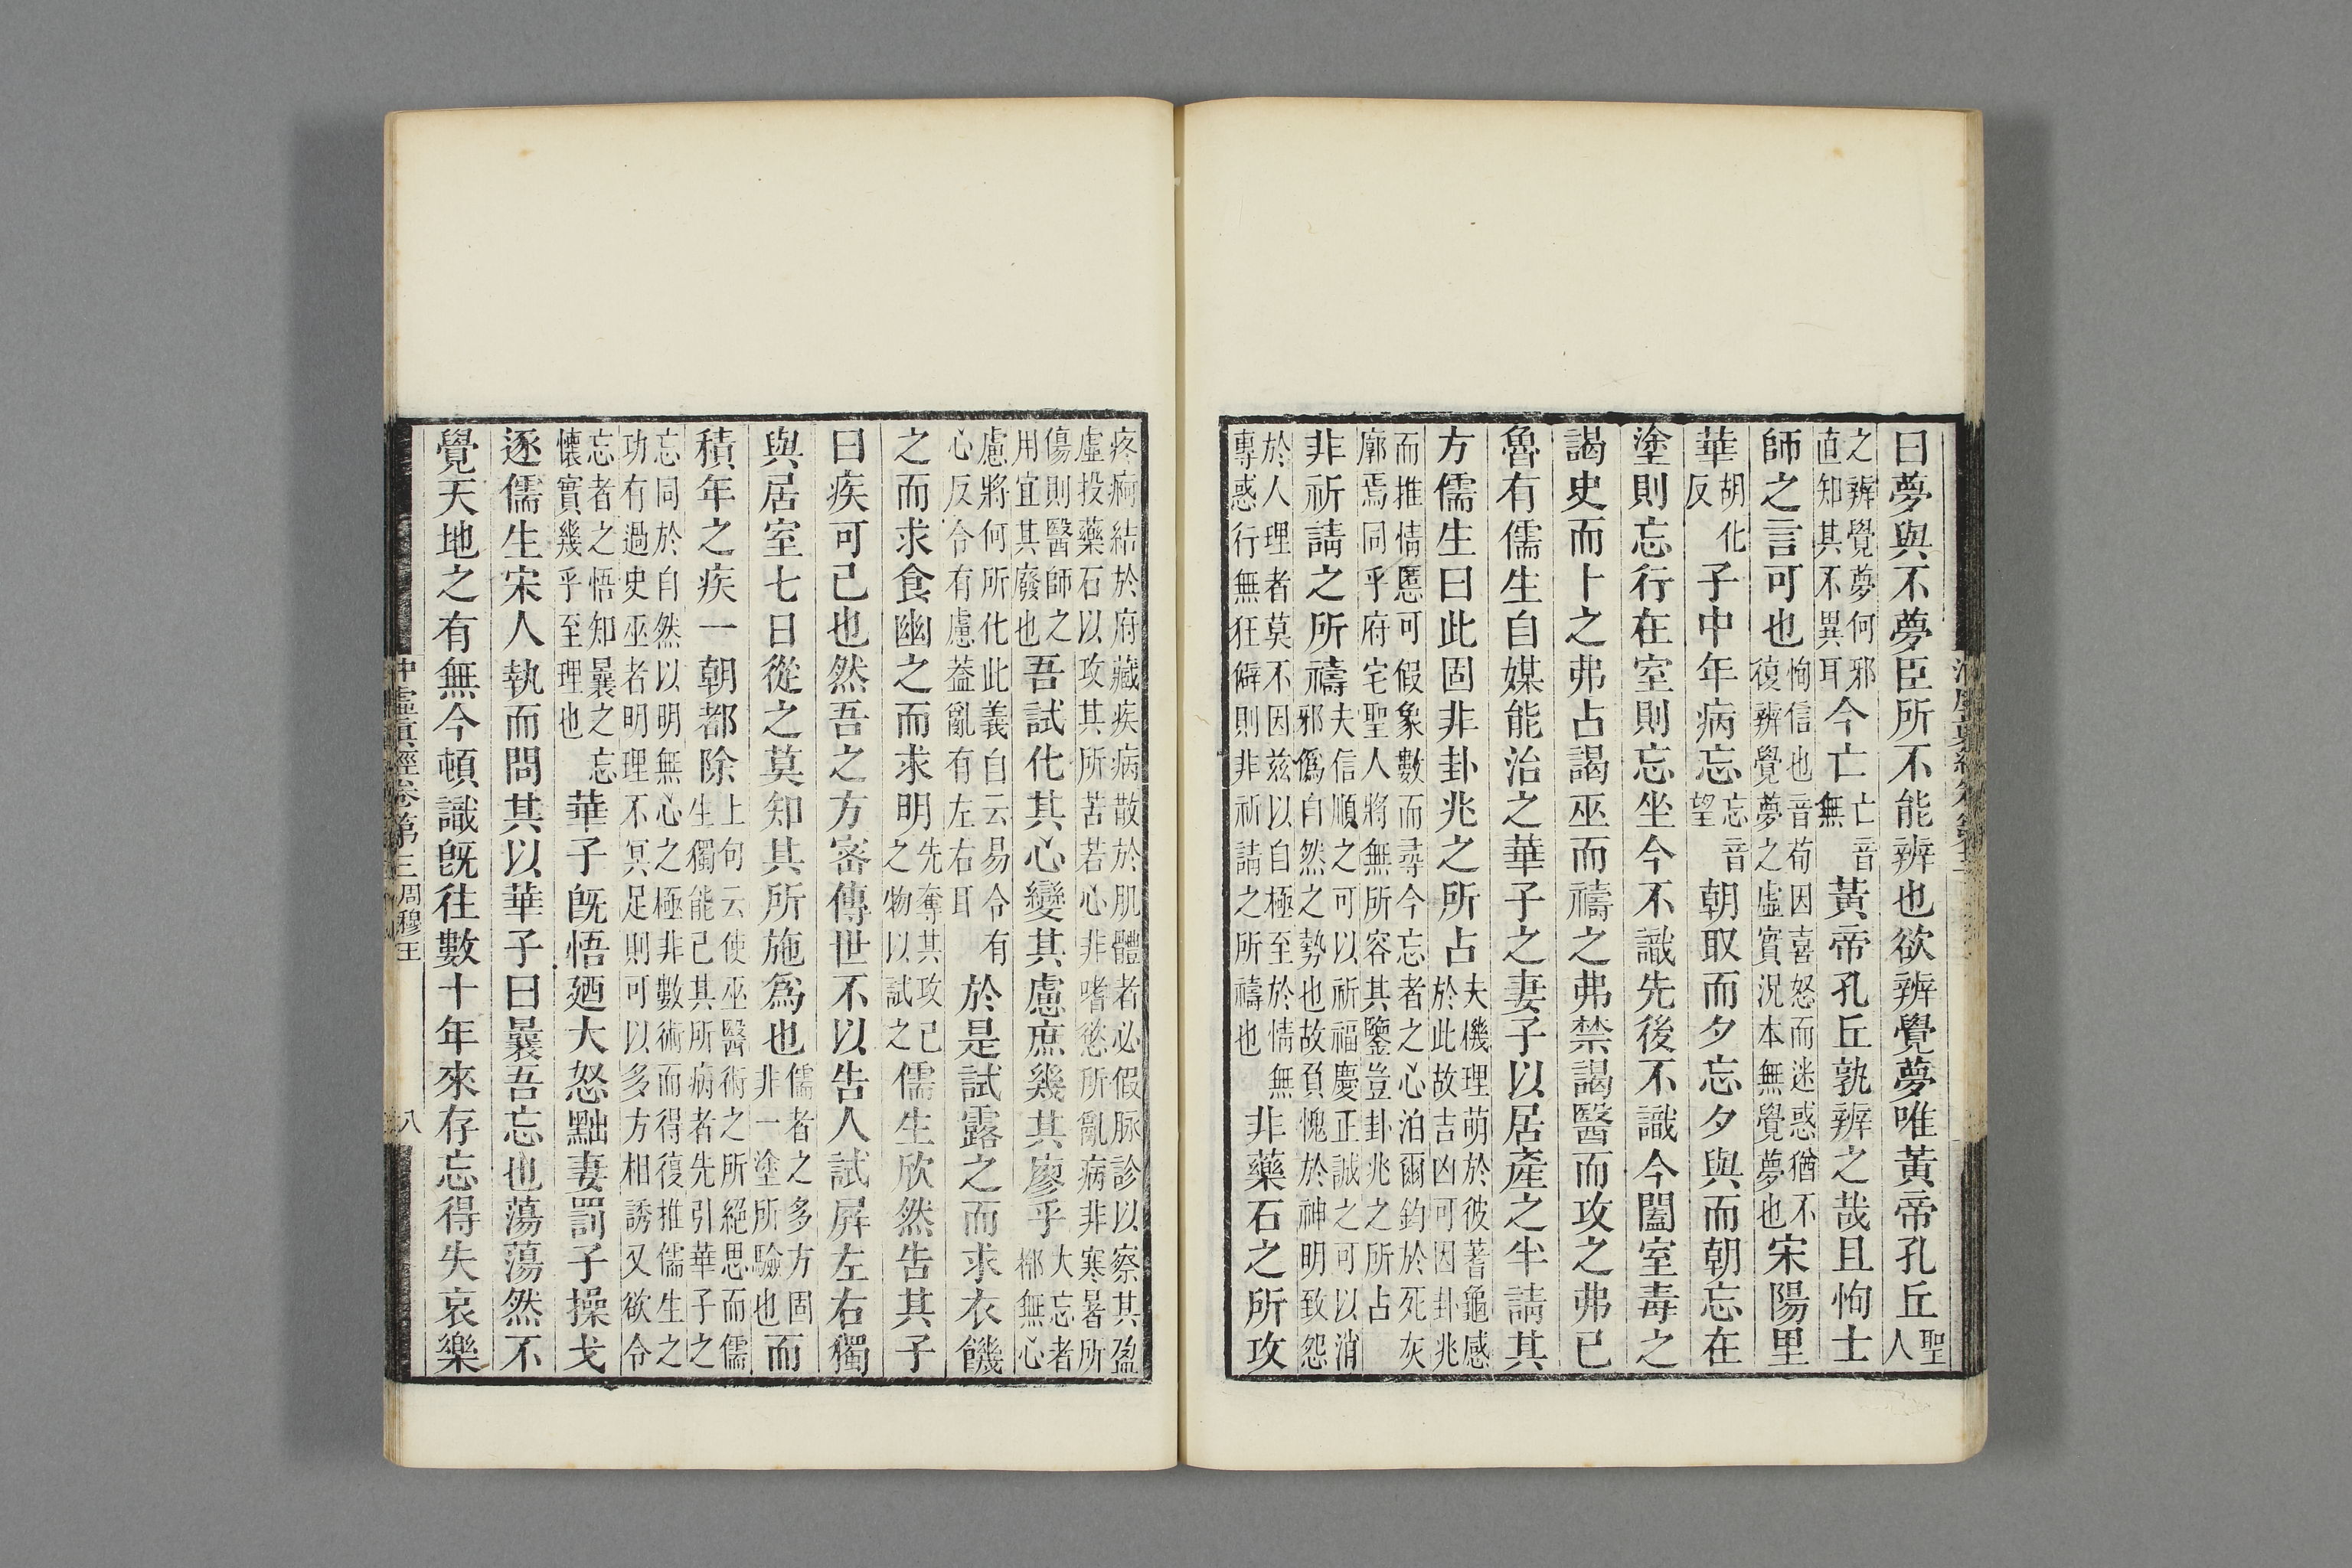 曰夢與不夢臣所不能辨也欲辨覺夢唯黃帝孔丘聖人
之辨覺夢何邪直知其不異耳今亡亡音無黃帝孔丘孰辨之哉且恂士
師之言可也恂信也音荀因喜怒而迷惑猶不復辨覺夢之虛實況本無覺夢也宋陽里
華胡化反子中年病忘忘音望朝取而夕忘夕與而朝忘在
塗則忘行在室則忘坐今不識先後不識今闔室毒之
謁史而卜之弗占謁巫而禱之弗禁謁醫而攻之弗已
魯有儒生自媒能治之華子之妻子以居產之半請其
方儒生曰此固非卦兆之所占夫機理萌於彼蓍龜感於此故吉凶可因卦兆
而推情慝可假象數而尋今忘者之心泊爾鈞於死灰廓焉同乎府宅聖人將無所容其鑒豈卦兆之所占
非祈請之所禱夫信順之可以祈福慶正誠之可以消邪僞自然之勢也故負愧於神明致怨
於人理者莫不因兹以自極至於情無專惑行無狂僻則非祈請之所禱也非藥石之所攻
疼痾結於府藏疾病散於肌體者必假脉診以察其盈虛投藥石以攻其所苦若心非嗜慾所亂病非寒暑所
傷則醫師之用宜其廢也吾試化其心變其慮庶幾其廖乎大忘者都無心
慮將何所化此義自云易令有心反令有慮葢亂有左右耳於是試露之而求衣饑
之而求食幽之而求明先奪其攻己之物以試之儒生欣然告其子
曰疾可已也然吾之方密傳世不以告人試屏左右獨
與居室七日從之莫知其所施爲也儒者之多方固非一塗所驗也而
積年之疾一朝都除上句云使巫醫術之所絕思而儒生獨能已其所病者先引華子之
忘同於自然以明無心之極非數術而得復推儒生之功有過史巫者明理不冥足則可以多方相誘又欲令
忘者之悟知曩之忘懷實幾乎至理也華子旣悟廼大怒黜妻罰子操戈
逐儒生宋人執而問其以華子曰曩吾忘也蕩蕩然不
覺天地之有無今頓識旣往數十年來存忘得失哀樂
沖虛眞經卷第三周穆王 八